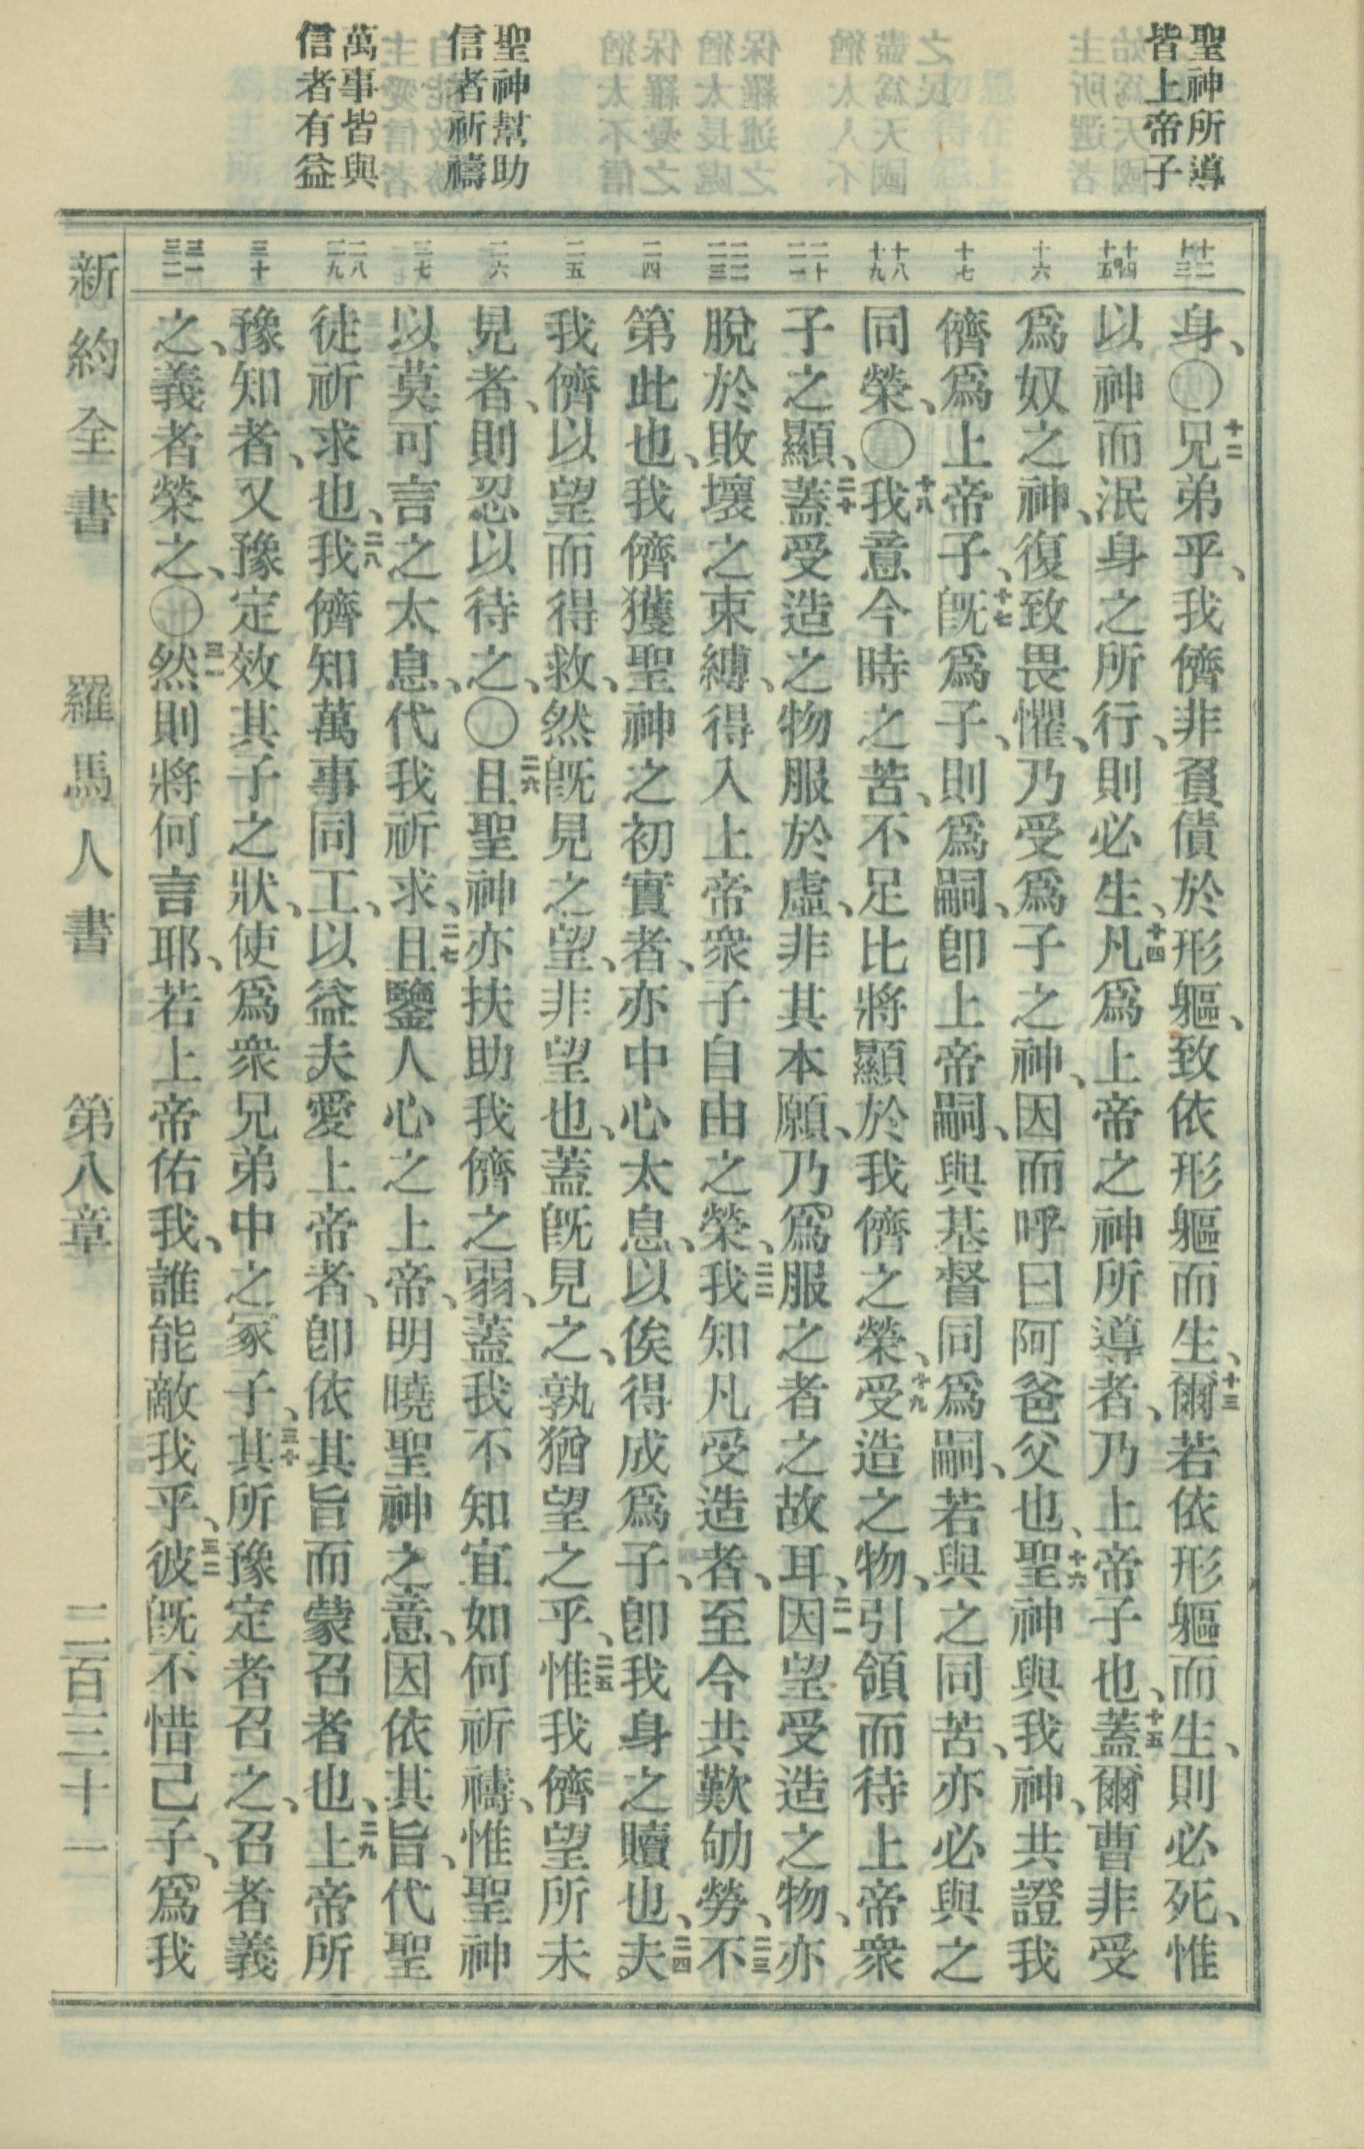 聖神所導
皆上帝子
聖神幫助
信者祈禱
萬事皆與
信者有益
十二 十三
十四 十五
十六
十七
十八 十九
二十 二一
二二 二三
二四
二五
二六
二七
二八 二九
三十
三一 三二
身、○十二兄弟乎、我儕非負債於形軀、致依形軀而生、十三爾若依形軀而生、則必死、惟
以神而泯身之所行、則必生、十四凡爲上帝之神所導者、乃上帝子也、十五蓋爾曹非受
爲奴之神、復致畏懼、乃受爲子之神、因而呼曰阿爸父也、十六聖神與我神、共證我
儕爲上帝子、十七旣爲子、則爲嗣、卽上帝嗣、與基督同爲嗣、若與之同苦、亦必與之
同榮、○十八我意今時之苦、不足比將顯於我儕之榮、十九受造之物、引領而待上帝衆
子之顯、二十蓋受造之物服於虛、非其本願、乃爲服之者之故耳、二一因望受造之物、亦
脫於敗壞之束縛、得入上帝衆子自由之榮、二二我知凡受造者、至今共歎劬勞、二三不
第此也、我儕獲聖神之初實者、亦中心太息、以俟得成爲子、卽我身之贖也、二四夫
我儕以望而得救、然旣見之望、非望也、蓋旣見之、孰猶望之乎、二五惟我儕望所未
見者、則忍以待之、○二六且聖神亦扶助我儕之弱、蓋我不知宜如何祈禱、惟聖神
以莫可言之太息、代我祈求、二七且鑒人心之上帝、明曉聖神之意、因依其旨、代聖
徒祈求也、二八我儕知萬事同工、以益夫愛上帝者、卽依其旨而蒙召者也、二九上帝所
豫知者、又豫定效其子之狀、使爲衆兄弟中之冢子、三十其所豫定者召之、召者義
之、義者榮之、○三一然則將何言耶、若上帝佑我、誰能敵我乎、三二彼旣不惜己子、爲我
新約全書 羅馬人書 第八章 二百三十一